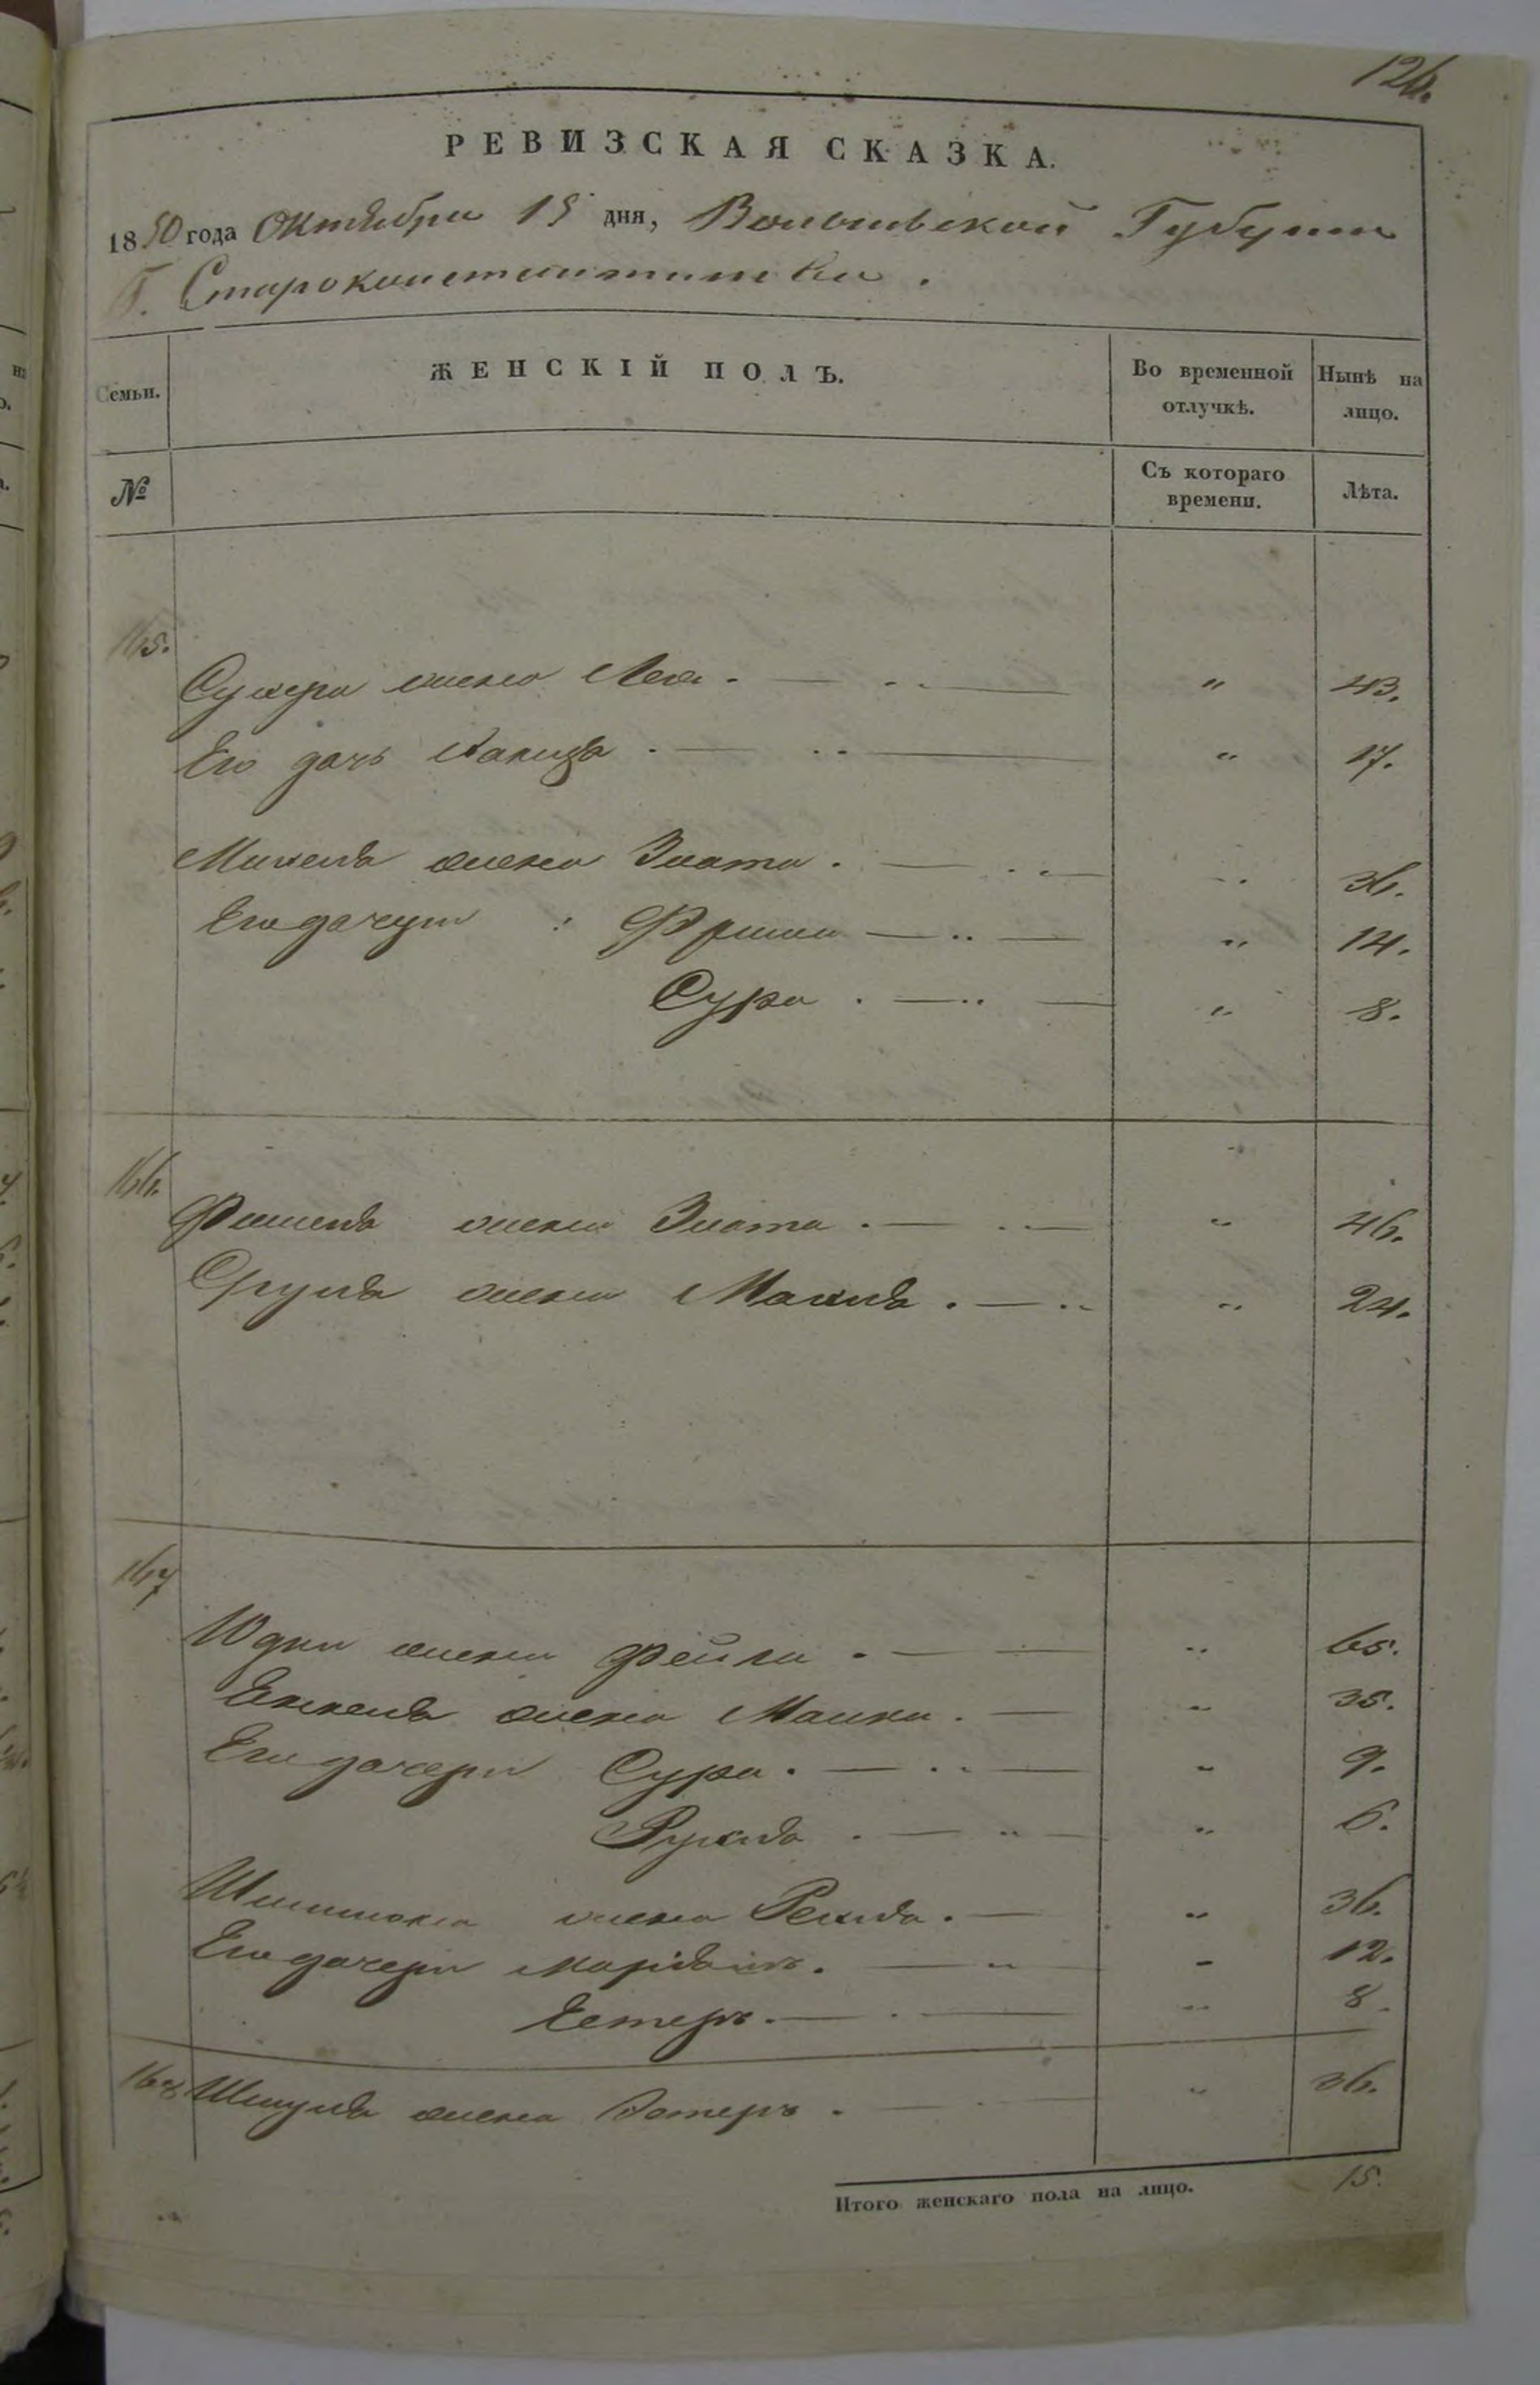 126.
РЕВИЗСКАЯ СКАЗКА.
1850 года Октября 15 дня, Волынской Губернии
Г. Староконстантинова.
Семьи. ЖЕНСКІЙ ПОЛЪ. Во временной отлучкѣ. Нынѣ на лицо.
№ Съ котораго времени. Лѣта.
165.
жена Лея. — „ 43.
Его дочь — „ 17.
жена Злата. — „ 36.
Его дочери: — „ 14.
Сура. — „ 8.
166.
Фишеля жена Злата. — „ 46.
Сруля жена Махля. — „ 24.
167
Юдки жена Фейга. — „ 65.
Янкеля жена — „ 35.
Его дочери Сура. — „ 9.
Рухля. — „ 6.
жена Рехля. — „ 36.
Его дочери Маріамъ. — „ 12.
Естеръ. — „ 8.
168 Шмуля жена Эстеръ. — „ 36.
Итого женскаго пола на лицо. 15.